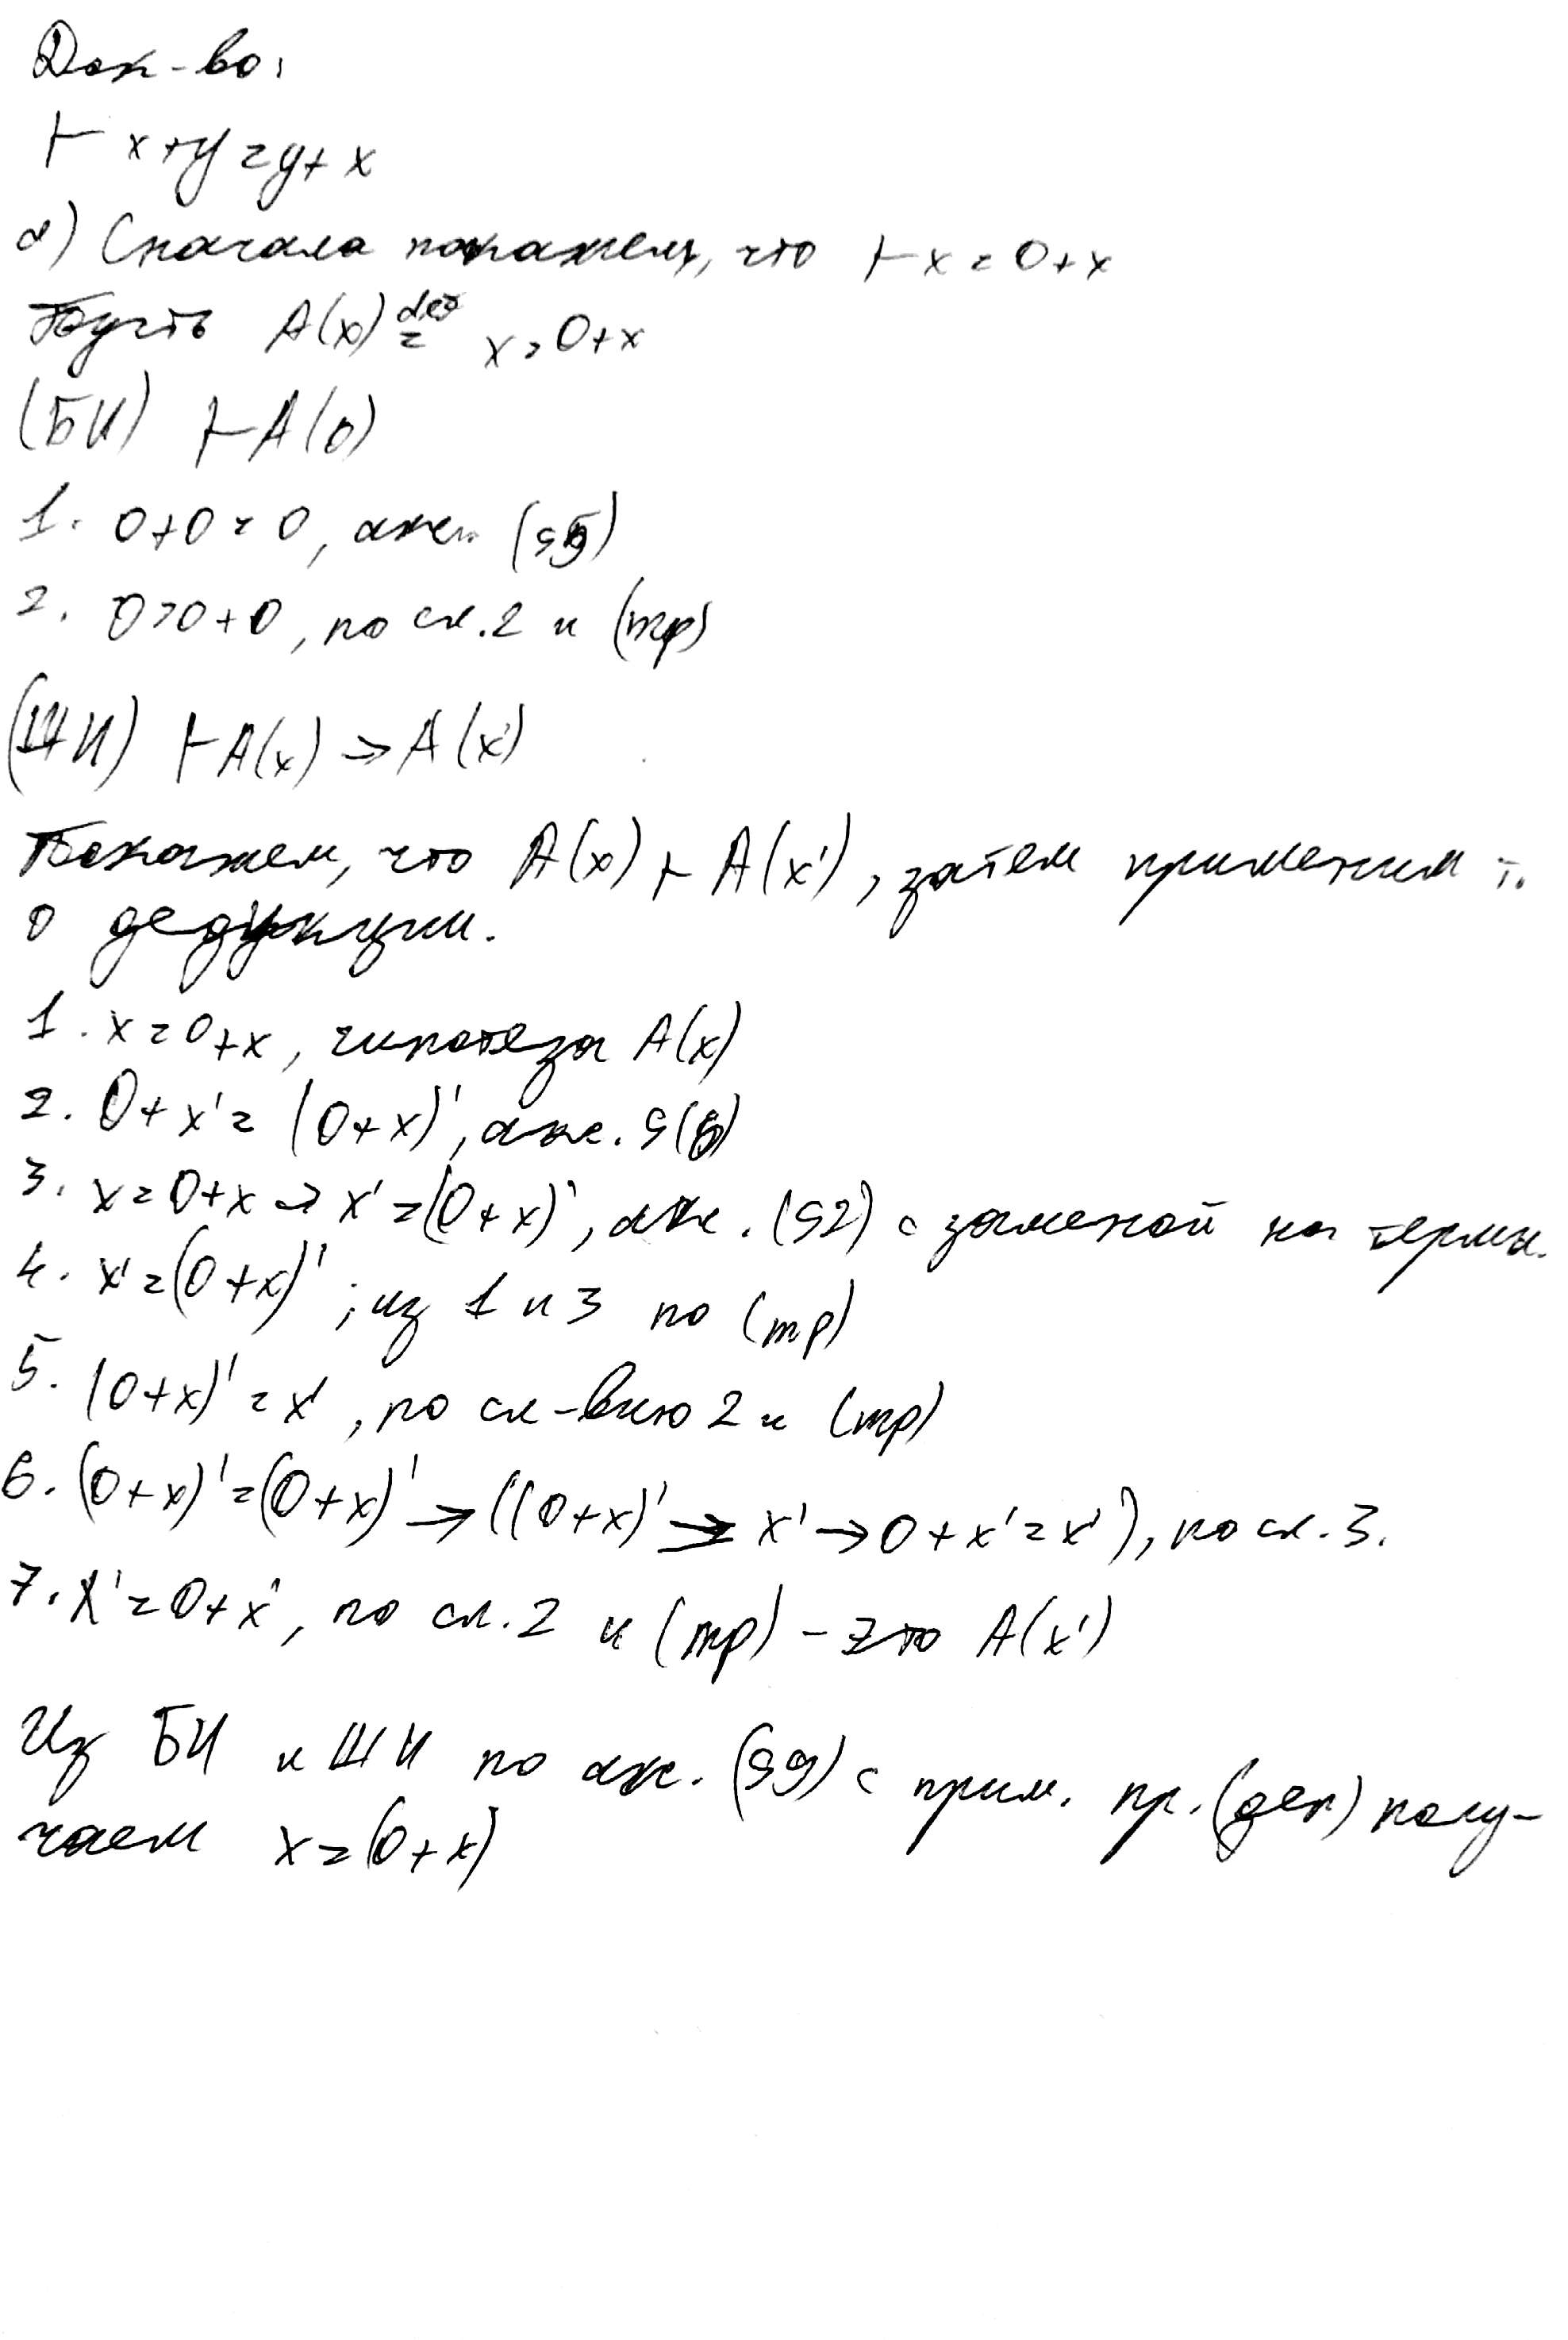 Док-во:
⊢ x+y=y+x
a) Сначала покажем, что ⊢ x=0+x
Пусть A(x) def= x=0+x
(БИ) ⊢A(0)
1. 0+0=0, акс. (s5)
2. 0=0+0, по сл.2 и (mp)
(ШИ) ⊢A(x)→A(x')
Покажем, что A(x) ⊢ A(x'), затем применим т.
о дедукции.
1. x=0+x, гипотеза A(x)
2. 0+x'=(0+x)', акс. S(6)
3. x=0+x→x'=(0+x)', акс. (S2) с заменой на термы.
4. x'=(0+x)'; из 1 и 3 по (mp)
5. (0+x)'=x', по сл-вию 2 и (mp)
6. (0+x)'=(0+x)'→((0+x)'→x'→0+x'=x'), по сл. 3.
7. x'=0+x', по сл.2 и (mp) - это A(x')
Из БИ и ШИ по акс. (S9) с прим. пр. (ген) полу-
чаем x=(0+x)